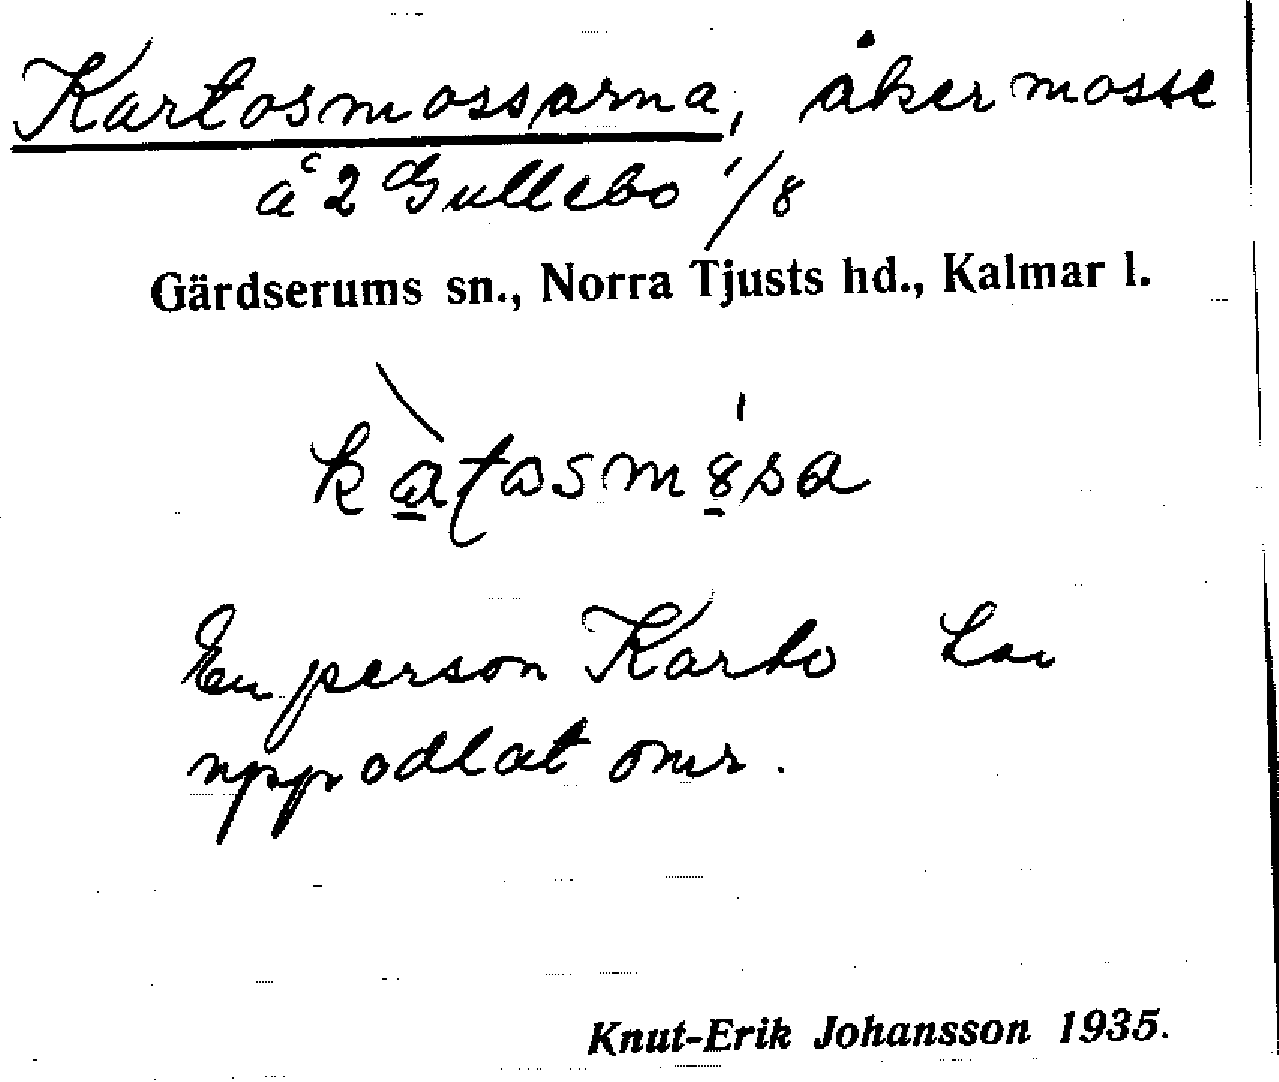 Kartosmossarna, åkermosse
å 2 Gullebo 1/8
Gärdserums sn., Norra Tjusts hd., Kalmar l.
kàtosmósa
En person Karto har
uppodlat omr.
Knut-Erik Johansson 1935.